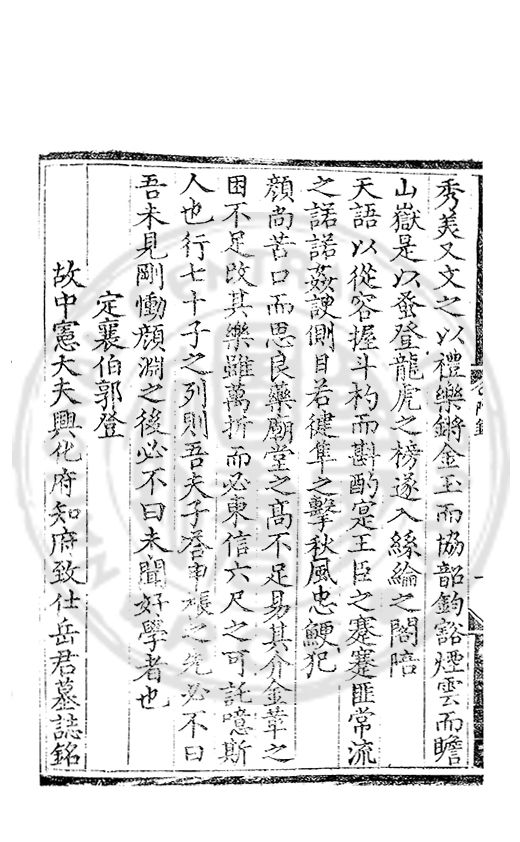 秀美又文之以禮樂鏘金玉而協韶鈞豁煙雲而瞻
山嶽是以發登龍虎之榜遂入絲綸之閣陪
天語以從容握斗杓而斟酌寔王臣之蹇蹇匪常流
之諾諾姦諛側目若健隼之擊秋風忠鯁犯
顏尚苦口而思良藥廟堂之高不足易其介金革之
困不足改其樂雖萬折而必東信六尺之可託噫斯
人也行七十子之列則吾夫子答申棖之先必不曰
吾未見剛慟顏淵之後必不曰未聞好學者也
定襄伯郭登
故中憲大夫興化府知府致仕岳君墓誌銘